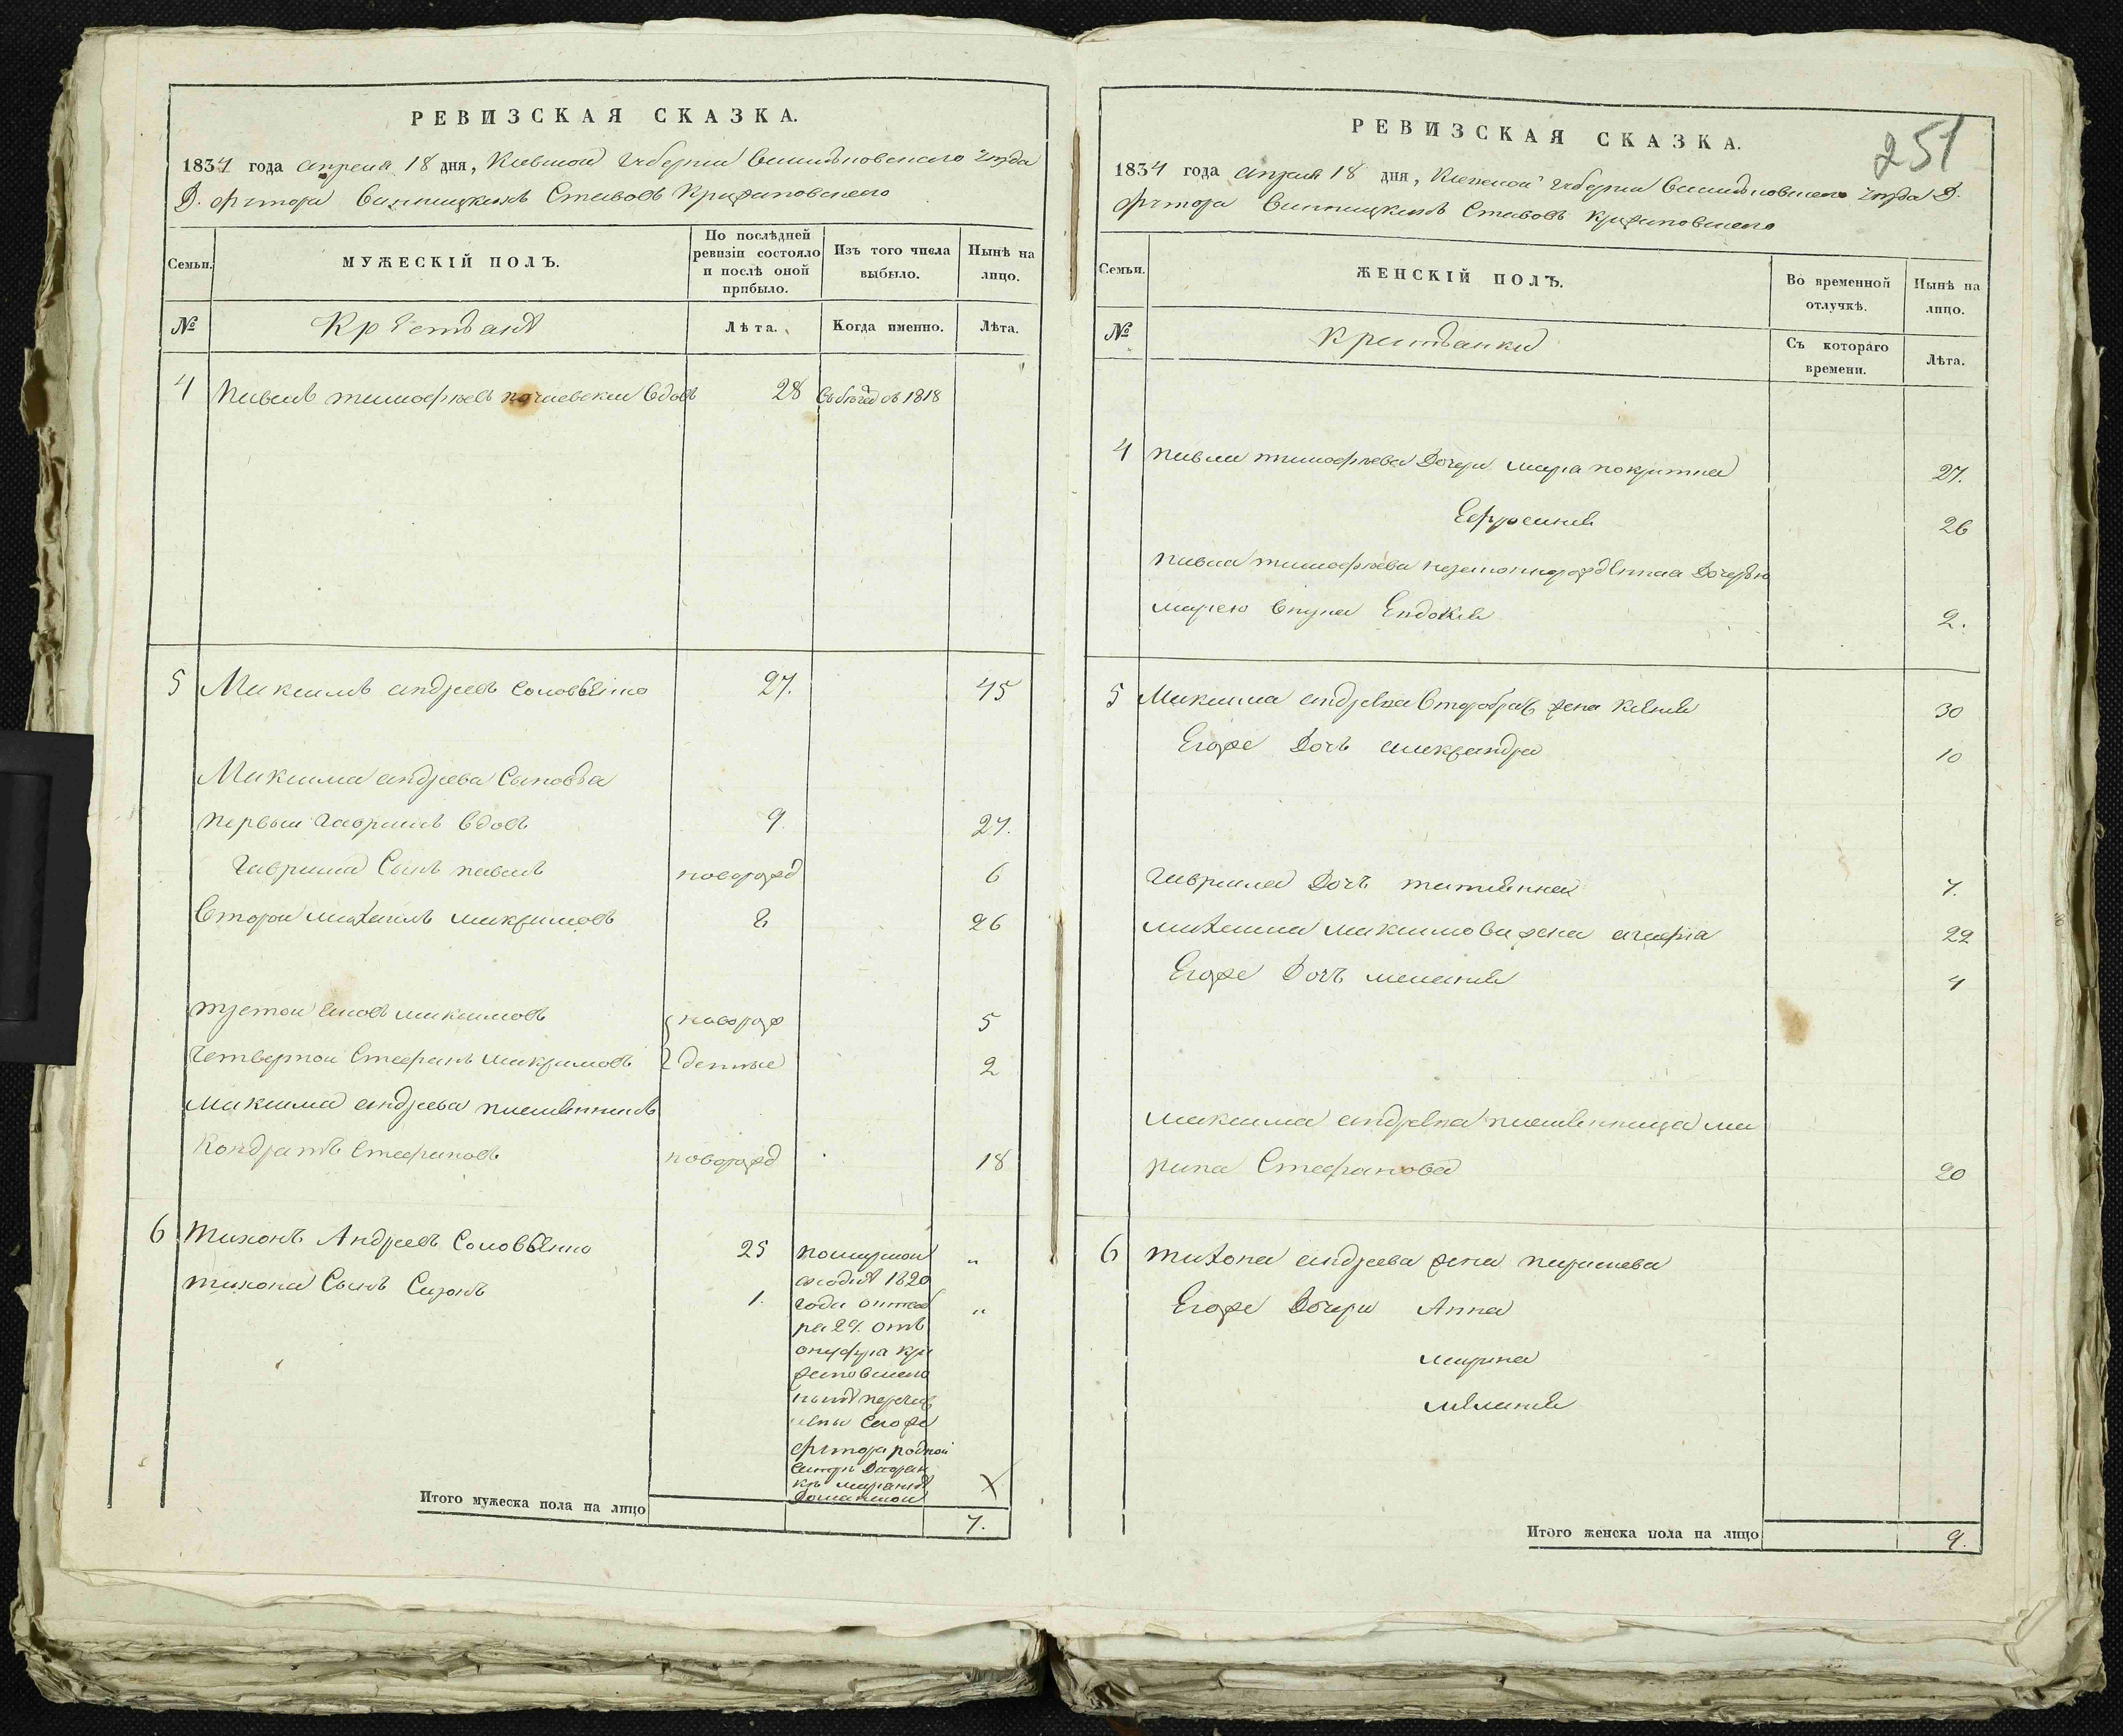 РЕВИЗСКАЯ СКАЗКА.
1834 года апреля 18 дня, Киевской губернии Васильковского уезда
Д. фхтора Винницкихъ Ставовъ
Семьи.
МУЖЕСКІЙ ПОЛЪ.
По послѣдней ревизіи состояло и послѣ оной прибыло.
Изъ того числа выбыло.
Нынѣ на лицо.
№
Крестьяне
Лѣта.
Когда именно.
Лѣта.
4 Павелъ тимофѣевъ вдовъ 28 1818
5 Максимъ андреевъ соловьенко 27. 45
Максима андреева Сыновья
первый гаврилъ вдовъ 9 27.
гаврила Сынъ павелъ новорожд 6
Второй михаилъ максимовъ 8 26
третой максимовъ новорож 5
четвертой Стефанъ максимовъ денные 2
максима андреева племенникъ
Кондратъ Стефановъ новорожд 18
6 тихонъ Андреевъ Соловьенко 25 "
тихона Сынъ 1. "
1820
года октяб
ра 29. отъ
фхтора родной
Итого мужеска пола на лицо 7.
251
РЕВИЗСКАЯ СКАЗКА.
1834 года апреля 18 дня, Киевской губернии Васильковского уезда Д.
фхтора Винницкихъ Ставовъ
Семьи.
ЖЕНСКІЙ ПОЛЪ.
Во временной отлучкѣ.
Нынѣ на лицо.
№
Крестьянки
Съ котораго времени.
Лѣта.
4 павла тимофѣева дочери мариа покритка 27.
Ефросиния 26
павла тимофѣева незаконнорожденная дочерью
мариею внука Евдокия 2.
5 Максима андреева второбрач жена Ксения 30
Егоже дочь александра 10
гаврила дочь татиянна 7.
михаила максимова жена агафиа 22
Егоже дочь мелания 4
максима андреева племенница ма
рина Стефанова 20
6 тихона андреева жена
Егоже дочери Анна
марина
мелания
Итого женска пола на лицо 9.